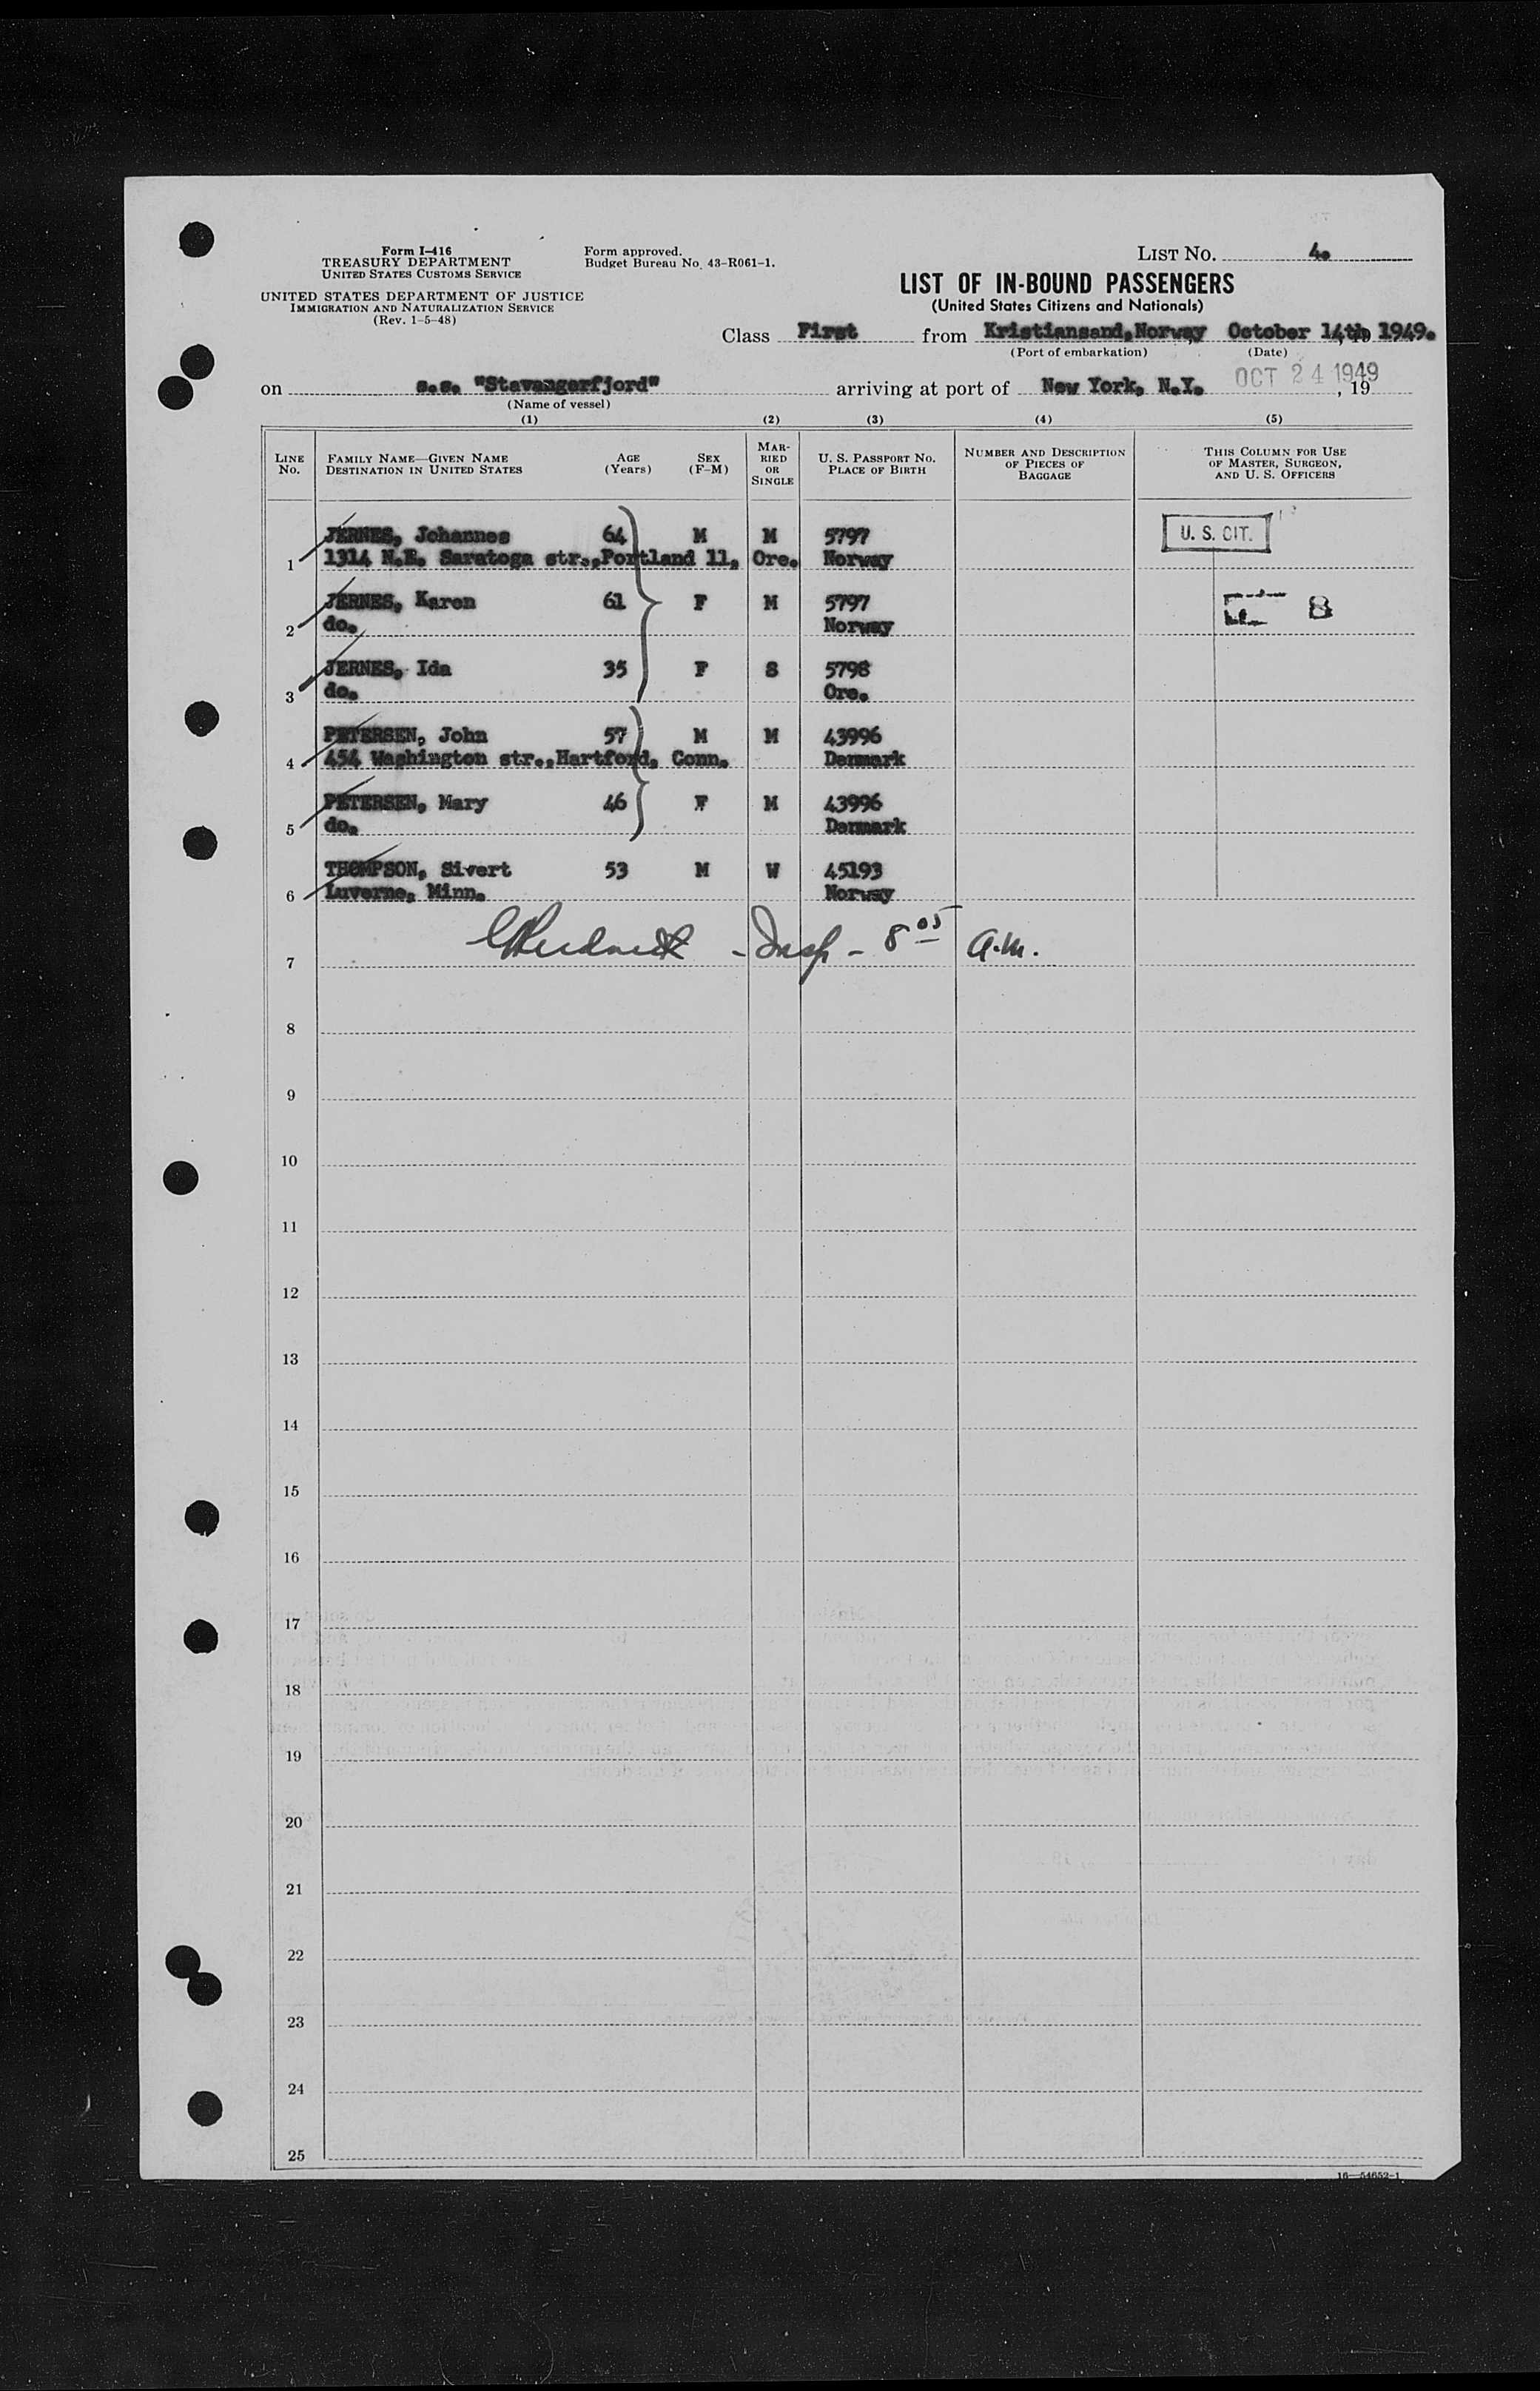 Form I-416
TREASURY DEPARTMENT
UNITED STATES CUSTOMS SERVICE
UNITED STATES DEPARTMENT OF JUSTICE
IMMIGRATION AND NATURALIZATION SERVICE
(Rev. 1-5-48)
Form approved.
Budget Bureau No. 43-R061-1.
LIST No. 4.
LIST OF IN-BOUND PASSENGERS
(United States Citizens and Nationals)
Class First from Kristiansand, Norway October 14th 1949.
(Port of embarkation) (Date)
on s.s. "Stavangerfjord" arriving at port of New York, N.Y. OCT 24 1949, 19
(Name of vessel)
(1) (2) (3) (4) (5)
LINE No.
FAMILY NAME—GIVEN NAME
DESTINATION IN UNITED STATES
AGE (Years)
SEX (F-M)
MARRIED OR SINGLE
U. S. PASSPORT No.
PLACE OF BIRTH
NUMBER AND DESCRIPTION OF PIECES OF BAGGAGE
THIS COLUMN FOR USE OF MASTER, SURGEON, AND U. S. OFFICERS
JERNES, Johannes 64 M M 5797 U. S. CIT.
1 1314 N.E. Saratoga str., Portland 11, Ore. Norway
JERNES, Karen 61 F M 5797 8
2 do. Norway
JERNES, Ida 35 F S 5798
3 do. Ore.
PETERSEN, John 57 M M 43996
4 454 Washington str., Hartford, Conn. Denmark
PETERSEN, Mary 46 F M 43996
5 do. Denmark
THOMPSON, Sivert 53 M W 45193
6 Luverne, Minn. Norway
7 - Insp - 8 05 a.m.
8
9
10
11
12
13
14
15
16
17
18
19
20
21
22
23
24
25
16—54652-1